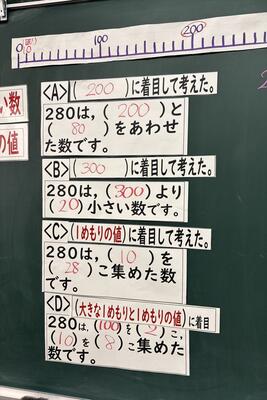 0
100
200
い数
の値
<A>(200)に着目して考えた。
280は,(200)と
(80)をあわせ
た数です。
<B>(300)に着目して考えた。
280は,(300)より
(20)小さい数です。
<C>(1めもりの値)に着目して考えた。
280は,(10)を
(28)こ集めた数
です。
<D>(大きな1めもりと1めもりの値)に着目
280は,(100)を(2)こ,
(10)を(8)こ集めた
数です。